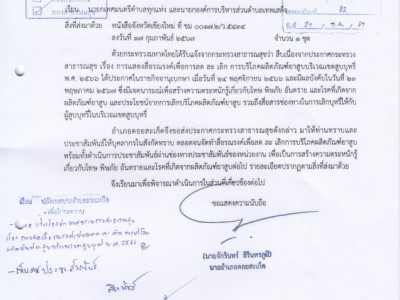 เรียน นายกเทศมนตรีตำบลทุกแห่ง และนายกองค์การบริหารส่วนตำบลเทพเสด็จ
สิ่งที่ส่งมาด้วย หนังสือจังหวัดเชียงใหม่ ที่ ชม
ลงวันที่ ๑๙ กุมภาพันธ์ ๒๕๖๗ จำนวน ๑ ชุด
ด้วยกระทรวงมหาดไทยได้รับแจ้งจากกระทรวงสาธารณสุขว่า สืบเนื่องจากประกาศกระทรวง
สาธารณสุข เรื่อง การแสดงสื่อรณรงค์เพื่อการลด ละ เลิก การบริโภคผลิตภัณฑ์ยาสูบในบริเวณเขตสูบบุหรี่
พ.ศ. ๒๕๖๖ ได้ประกาศในราชกิจจานุเบกษา เมื่อวันที่ ๒๔ พฤศจิกายน ๒๕๖๖ และมีผลบังคับในวันที่ ๒๓
พฤษภาคม ๒๕๖๗ ซึ่งมีเจตนารมณ์เพื่อสร้างความตระหนักรู้เกี่ยวกับโทษ พิษภัย อันตราย และโรคที่เกิดจาก
ผลิตภัณฑ์ยาสูบ และประโยชน์จากการเลิกบริโภคผลิตภัณฑ์ยาสูบ รวมถึงสื่อสารช่องทางในการเลิกบุหรี่ให้กับ
ผู้สูบบุหรี่ในบริเวณเขตสูบบุหรี่
อำเภอดอยสะเก็ดจึงขอส่งประกาศกระทรวงสาธารณสุขดังกล่าว มาให้ท่านทราบและ
ประชาสัมพันธ์ให้บุคลากรในสังกัดทราบ ตลอดจนจัดทำสื่อรณรงค์เพื่อลด ละ เลิกการบริโภคผลิตภัณฑ์ยาสูบ
พร้อมทั้งดำเนินการประชาสัมพันธ์ผ่านช่องทางประชาสัมพันธ์ของหน่วยงาน เพื่อเป็นการสร้างความตระหนักรู้
เกี่ยวกับโทษ พิษภัย อันตรายและโรคที่เกิดจากผลิตภัณฑ์ยาสูบต่อไป รายละเอียดปรากฏตามสิ่งที่ส่งมาด้วย
จึงเรียนมาเพื่อพิจารณาดำเนินการในส่วนที่เกี่ยวข้องต่อไป
ขอแสดงความนับถือ
(นายจักรินทร์ สิรินทรภูมิ)
นายอำเภอดอยสะเก็ด